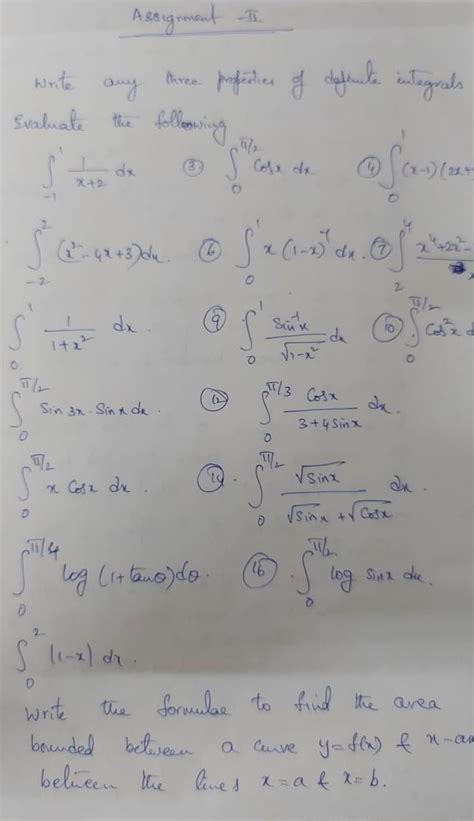 Assignment -II
Write any three properties of definite integrals
Evaluate the following
∫_{-1}^{1} 1/(x+2) dx ③ ∫_{0}^{π/2} Cosx dx ④ ∫_{0}^{1} (x-1)(2x+
∫_{-2}^{2} (x²-4x+3)dx. ⑥ ∫_{0}^{1} x(1-x)^7 dx. ⑦ ∫_{2}^{4} x⁴+2x²-
∫_{0}^{1} 1/(1+x²) dx. ⑨ ∫_{0}^{1} Sin⁻¹x/√(1-x²) dx ⑩ ∫_{0}^{π/2} Cos²x d
∫_{0}^{π/2} Sin 3x. Sinx dx. ⑫ ∫_{0}^{π/3} Cosx/(3+4Sinx) dx.
∫_{0}^{π/2} x Cosx dx. ⑭ ∫_{0}^{π/2} √Sinx/(√Sinx+√Cosx) dx.
∫_{0}^{π/4} log(1+tanθ)dθ. ⑯ ∫_{0}^{π/2} log sinx dx.
∫_{0}^{2} |1-x| dx.
Write the formulae to find the area
bounded between a curve y=f(x) & x-ax
between the lines x=a & x=b.